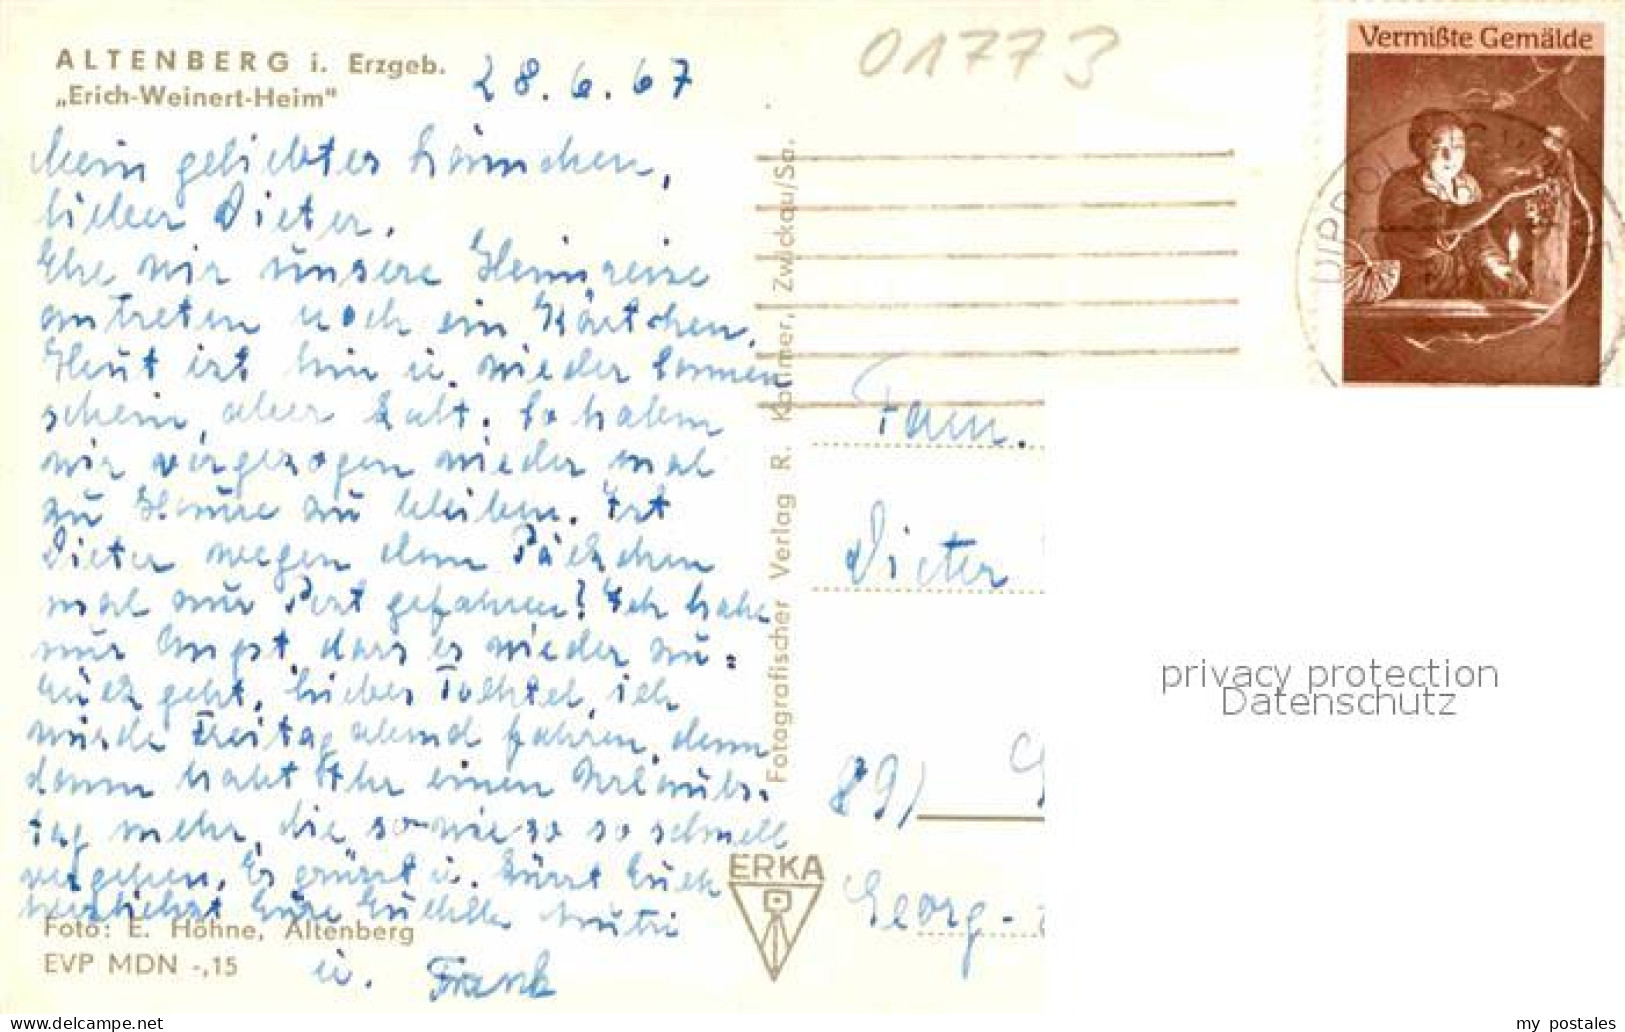 ALTENBERG i. Erzgeb.
„Erich-Weinert-Heim"
28.6.67
Mein geliebtes
lieber Dieter.
Ehe wir unsere Heimreise
antreten noch ein Kärtchen.
Heut ist hin u. wieder Sonnen
schein, aber kalt. So haben
wir vorgezogen wieder mal
zu Hause zu bleiben. Ist
Dieter wegen dem Päckchen
mal zur Post gefahren? Ich habe
nur Angst, dass es wieder zu=
rück geht. Liebes ich
würde Freitag abend fahren, denn
dann habt Ihr einen Urlaubs-
tag mehr, die sowieso so schnell
vergehen. Es grüsst u. küsst Euch
herzlichst Eure Mutti
u. Frank
Foto: E. Höhne, Altenberg
EVP MDN -,15
Fotografischer Verlag R. Kollmer, Zwickau/Sa.
ERKA
01773
Vermißte Gemälde
Fam.
Dieter
891
Georg-
privacy protection
Datenschutz
www.delcampe.net
my_postales